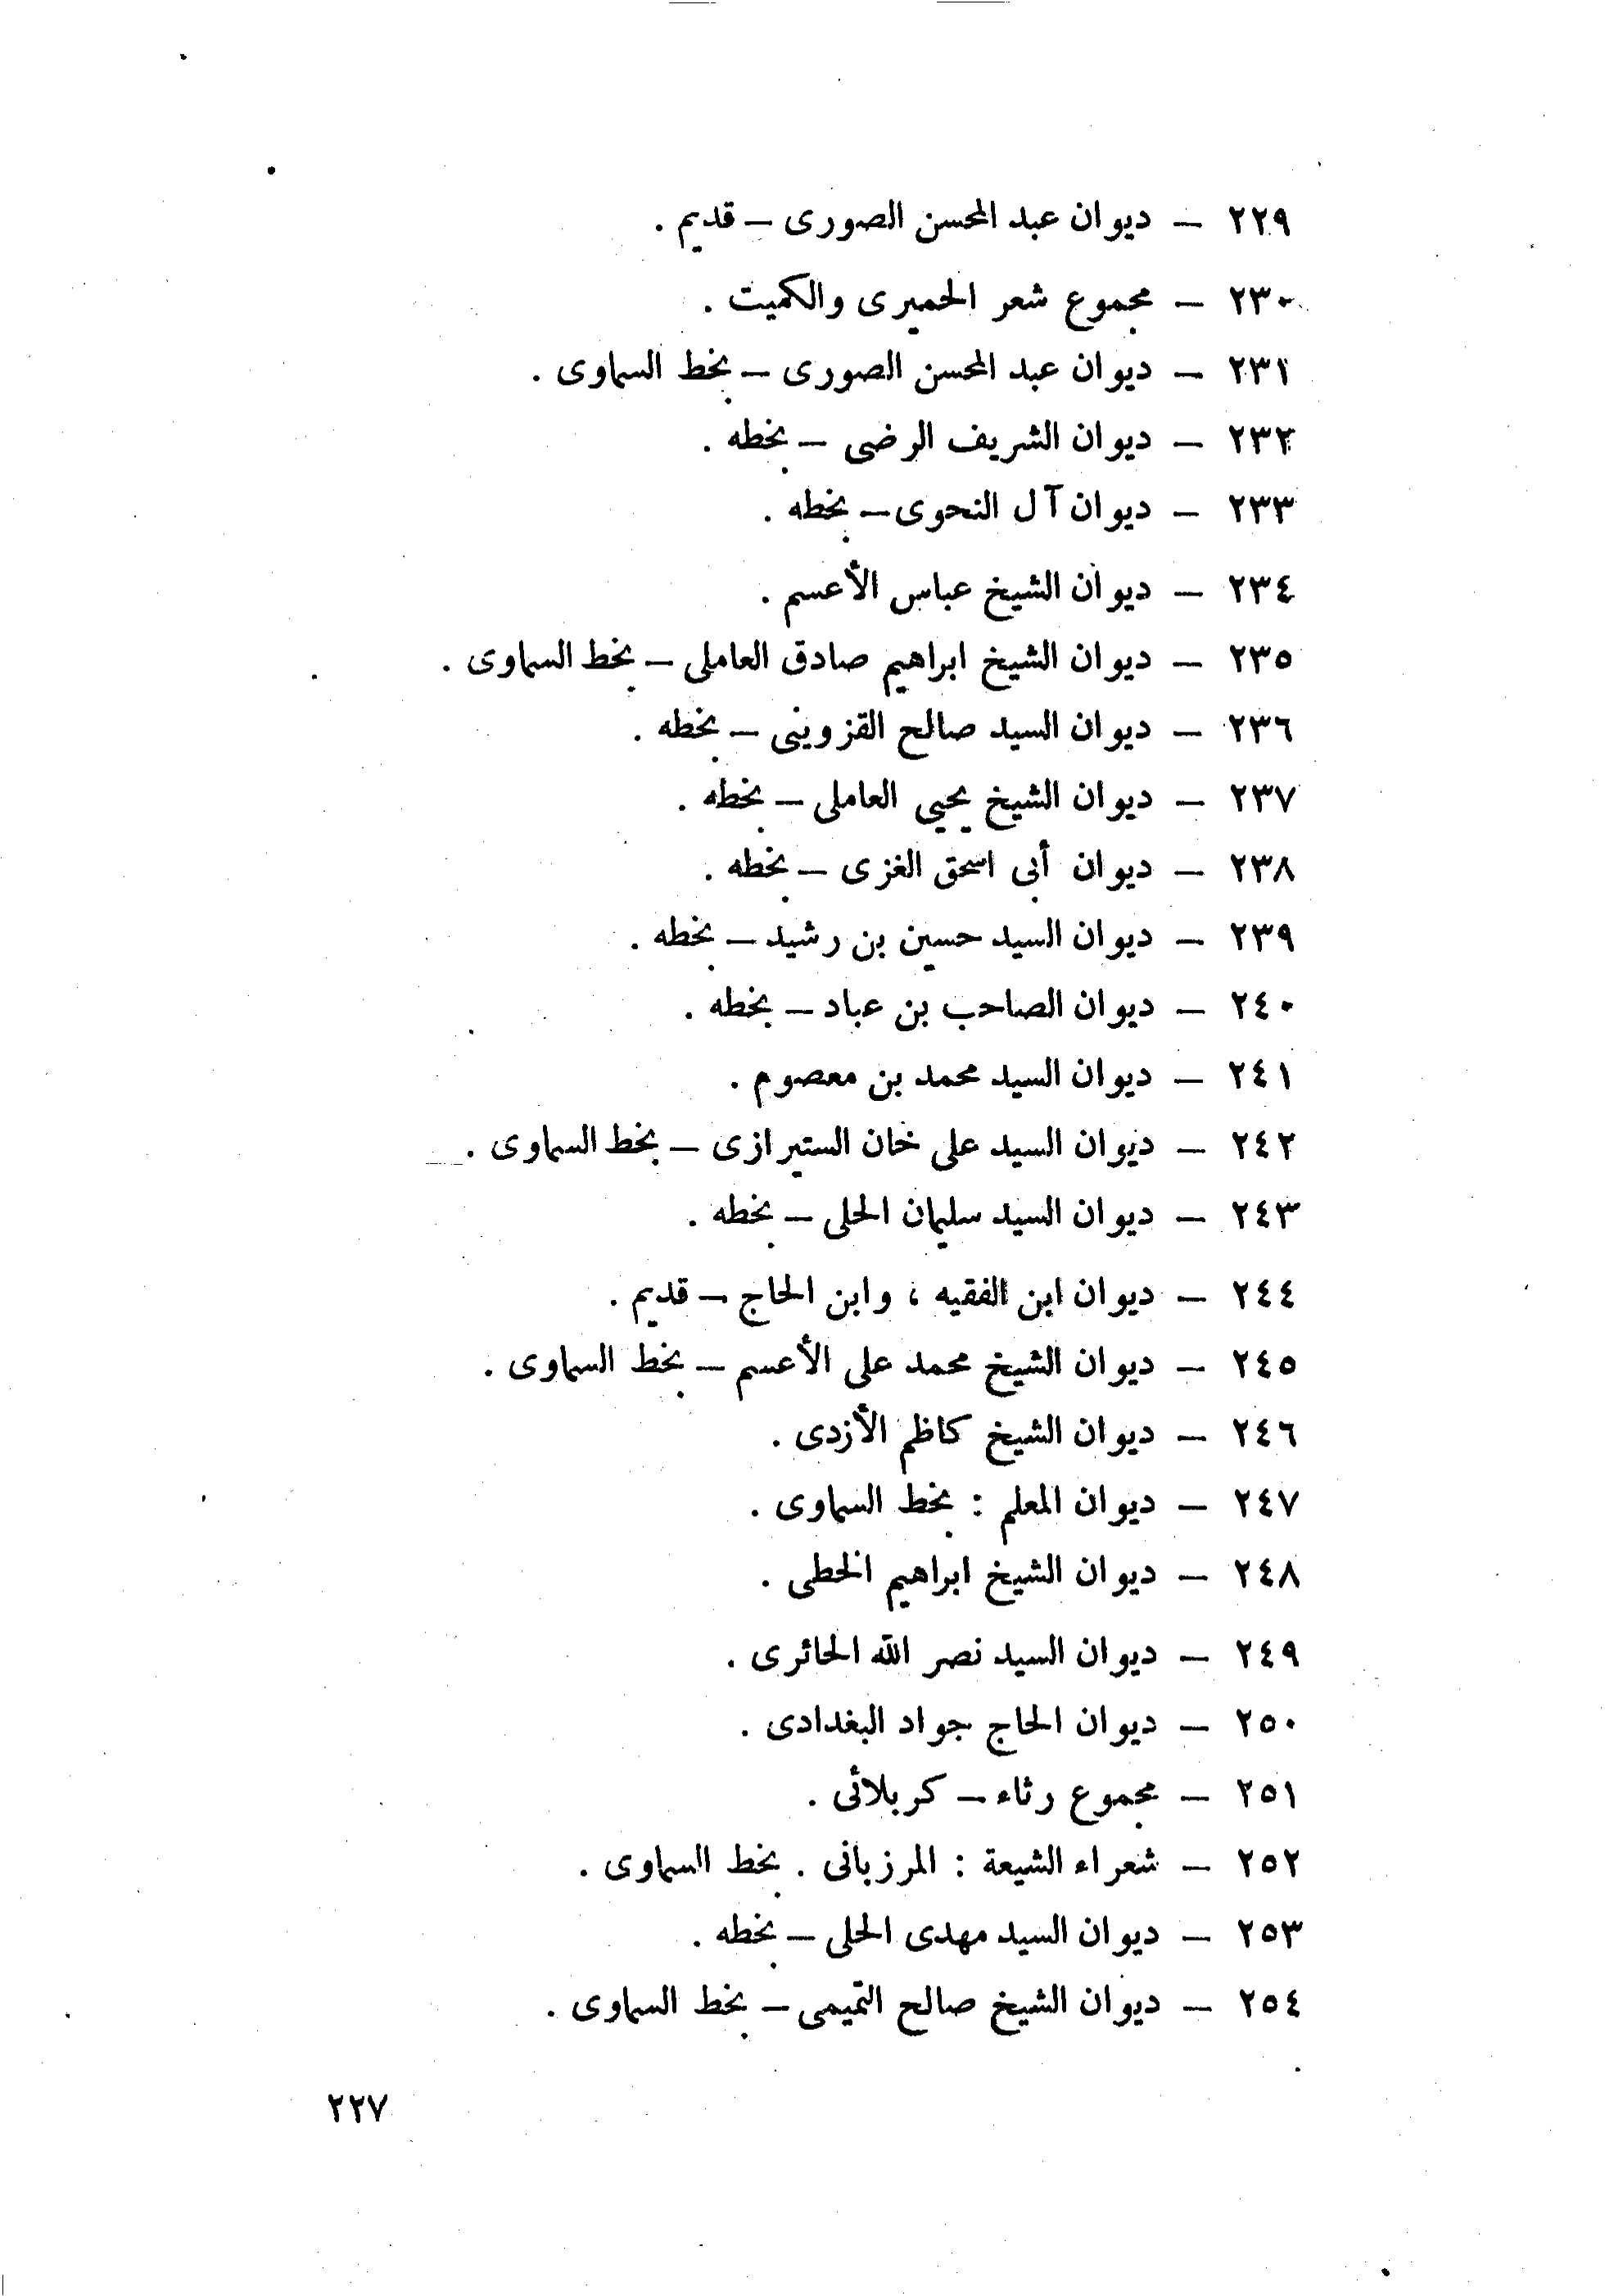 ٢٢٩ – ديوان عبد المحسن الصورى – قديم .
٢٣٠ – مجموع شعر الحميرى والكميت .
٢٣١ – ديوان عبد المحسن الصورى – بخط السماوى .
٢٣٢ – ديوان الشريف الرضى – بخطه .
٢٣٣ – ديوان آل النحوى – بخطه .
٢٣٤ – ديوان الشيخ عباس الأعسم .
٢٣٥ – ديوان الشيخ ابراهيم صادق العاملى – بخط السماوى .
٢٣٦ – ديوان السيد صالح القزوينى – بخطه .
٢٣٧ – ديوان الشيخ يحيى العاملى – بخطه .
٢٣٨ – ديوان أبى اسحق الغزى – بخطه .
٢٣٩ – ديوان السيد حسين بن رشيد – بخطه .
٢٤٠ – ديوان الصاحب بن عباد – بخطه .
٢٤١ – ديوان السيد محمد بن معصوم .
٢٤٢ – ديوان السيد على خان الستيرازى – بخط السماوى .
٢٤٣ – ديوان السيد سليمان الحلى – بخطه .
٢٤٤ – ديوان ابن الفقيه ، وابن الحاج – قديم .
٢٤٥ – ديوان الشيخ محمد على الأعسم – بخط السماوى .
٢٤٦ – ديوان الشيخ كاظم الأزدى .
٢٤٧ – ديوان المعلم : بخط السماوى .
٢٤٨ – ديوان الشيخ ابراهيم الخطى .
٢٤٩ – ديوان السيد نصر الله الحائرى .
٢٥٠ – ديوان الحاج جواد البغدادى .
٢٥١ – مجموع رثاء – كربلائى .
٢٥٢ – شعراء الشيعة : المرزبانى . بخط السماوى .
٢٥٣ – ديوان السيد مهدى الحلى – بخطه .
٢٥٤ – ديوان الشيخ صالح التميمى – بخط السماوى .
٢٢٧